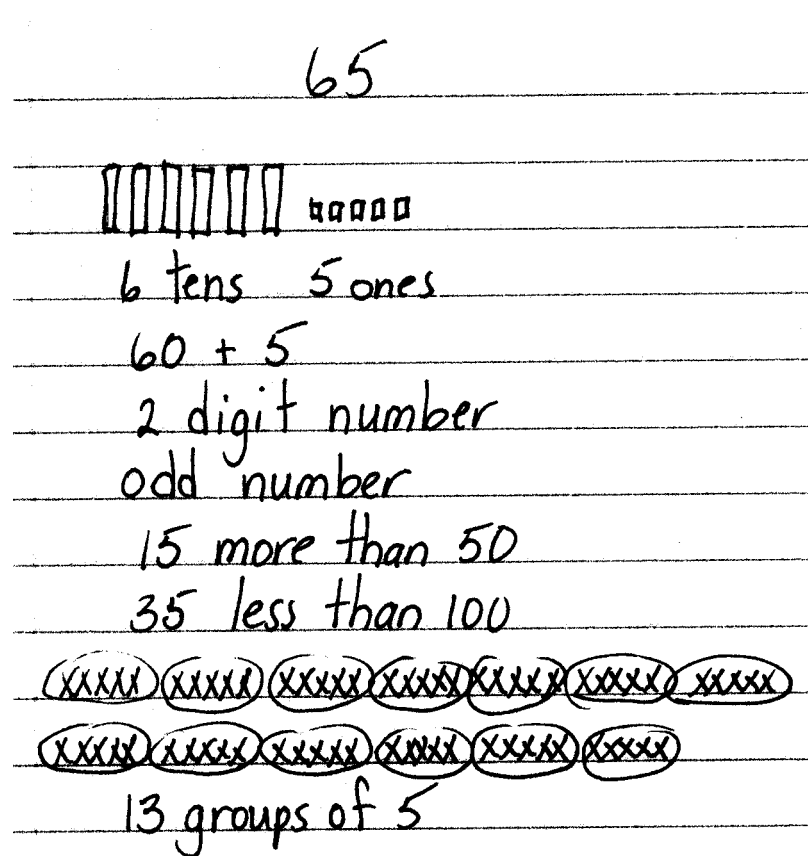 65
6 tens 5 ones
60 + 5
2 digit number
odd number
15 more than 50
35 less than 100
XXXXX XXXXX XXXXX XXXXX XXXXX XXXXX XXXXX
XXXXX XXXXX XXXXX XXXXX XXXXX XXXXX
13 groups of 5